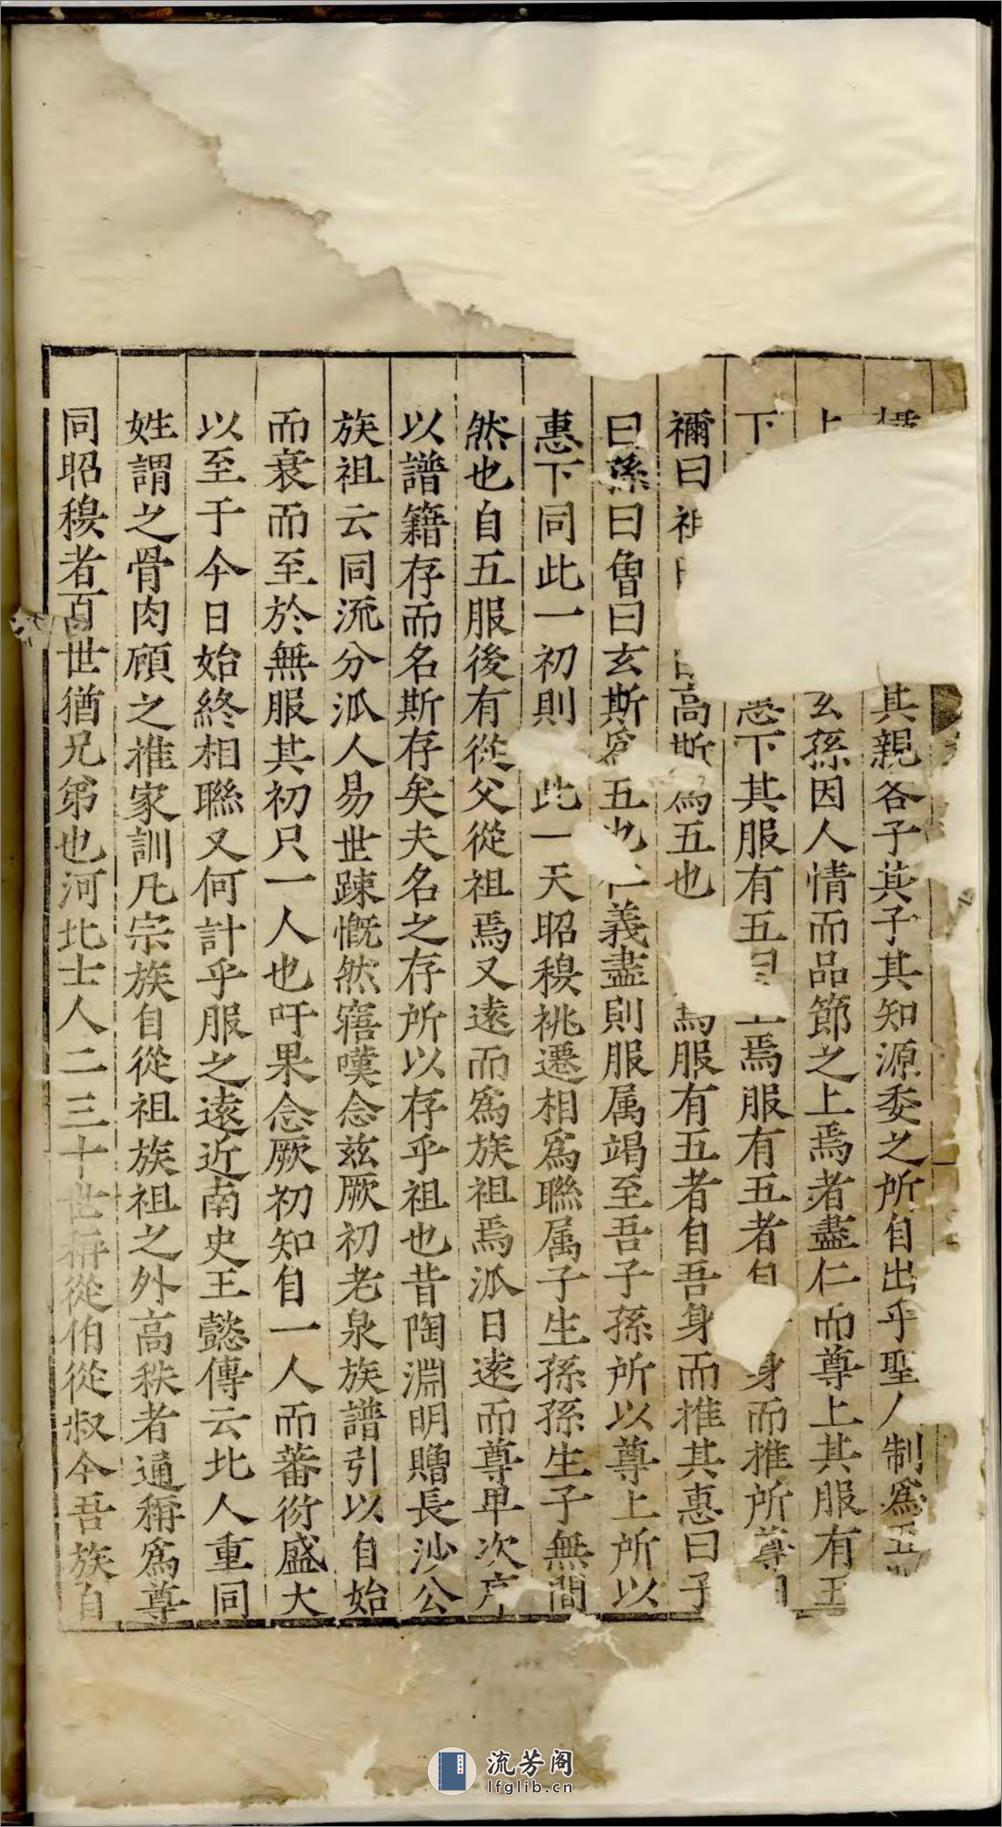 其親各子其子其知源委之所自出乎聖人制爲五
玄孫因人情而品節之上焉者盡仁而尊上其服有五
下 惠下其服有五 焉服有五者自 身而推所尊曰
禰曰祖曰 高斯爲五也 焉服有五者自吾身而推其惠曰子
曰孫曰曾曰玄斯爲五也仁義盡則服属竭至吾子孫所以尊上所以
惠下同此一初則 此一天昭穆祧遷相爲聯属子生孫孫生子無間
然也自五服後有從父從祖焉又遠而爲族祖焉派日遠而尊卑次序
以譜籍存而名斯存矣夫名之存所以存乎祖也昔陶淵明贈長沙公
族祖云同流分派人易世踈慨然寤嘆念茲厥初老泉族譜引以自始
而衰而至於無服其初只一人也吁果念厥初知自一人而蕃衍盛大
以至于今日始終相聯又何計乎服之遠近南史王懿傳云北人重同
姓謂之骨肉顏之推家訓凡宗族自從祖族祖之外高秩者通稱爲尊
同昭穆者百世猶兄弟也河北士人二三十世 從伯從叔今吾族自
流芳阁
lfglib.cn